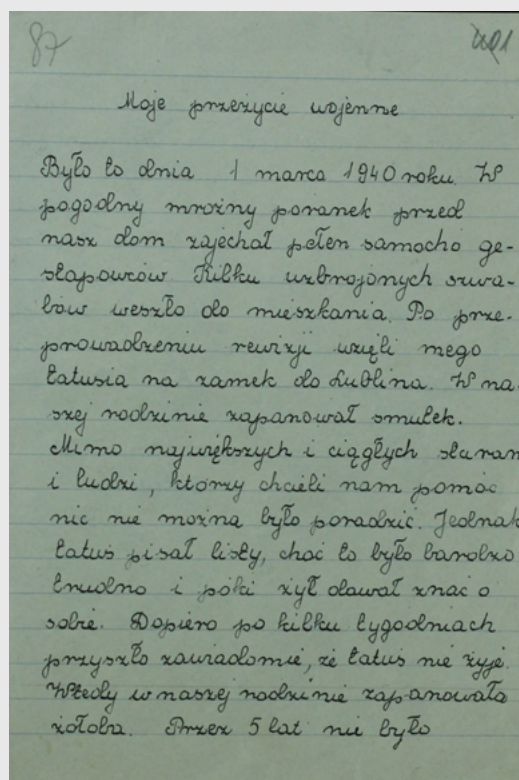 87
Moje przeżycie wojenne
Było to dnia 1 marca 1940 roku. W
pogodny mroźny poranek przed
nasz dom zajechał pełen samocho ge-
stapowców Kilku uzbrojonych szwa-
bów weszło do mieszkania. Po prze-
prowadzeniu rewizji wzięli mego
tatusia na zamek do Lublina. W na
szej rodzinie zapanował smutek.
Mimo największych i ciągłych staran
i ludzi, którzy chcieli nam pomóc
nic nie można było poradzić. Jednak
tatuś pisał listy, choć to było bardzo
trudno i póki żył dawał znać o
sobie. Dopiero po kilku tygodniach
przyszło zawiadomie, że tatuś nie żyje.
Wtedy w naszej rodzinie zapanowała
żołoba. Przez 5 lat nie było